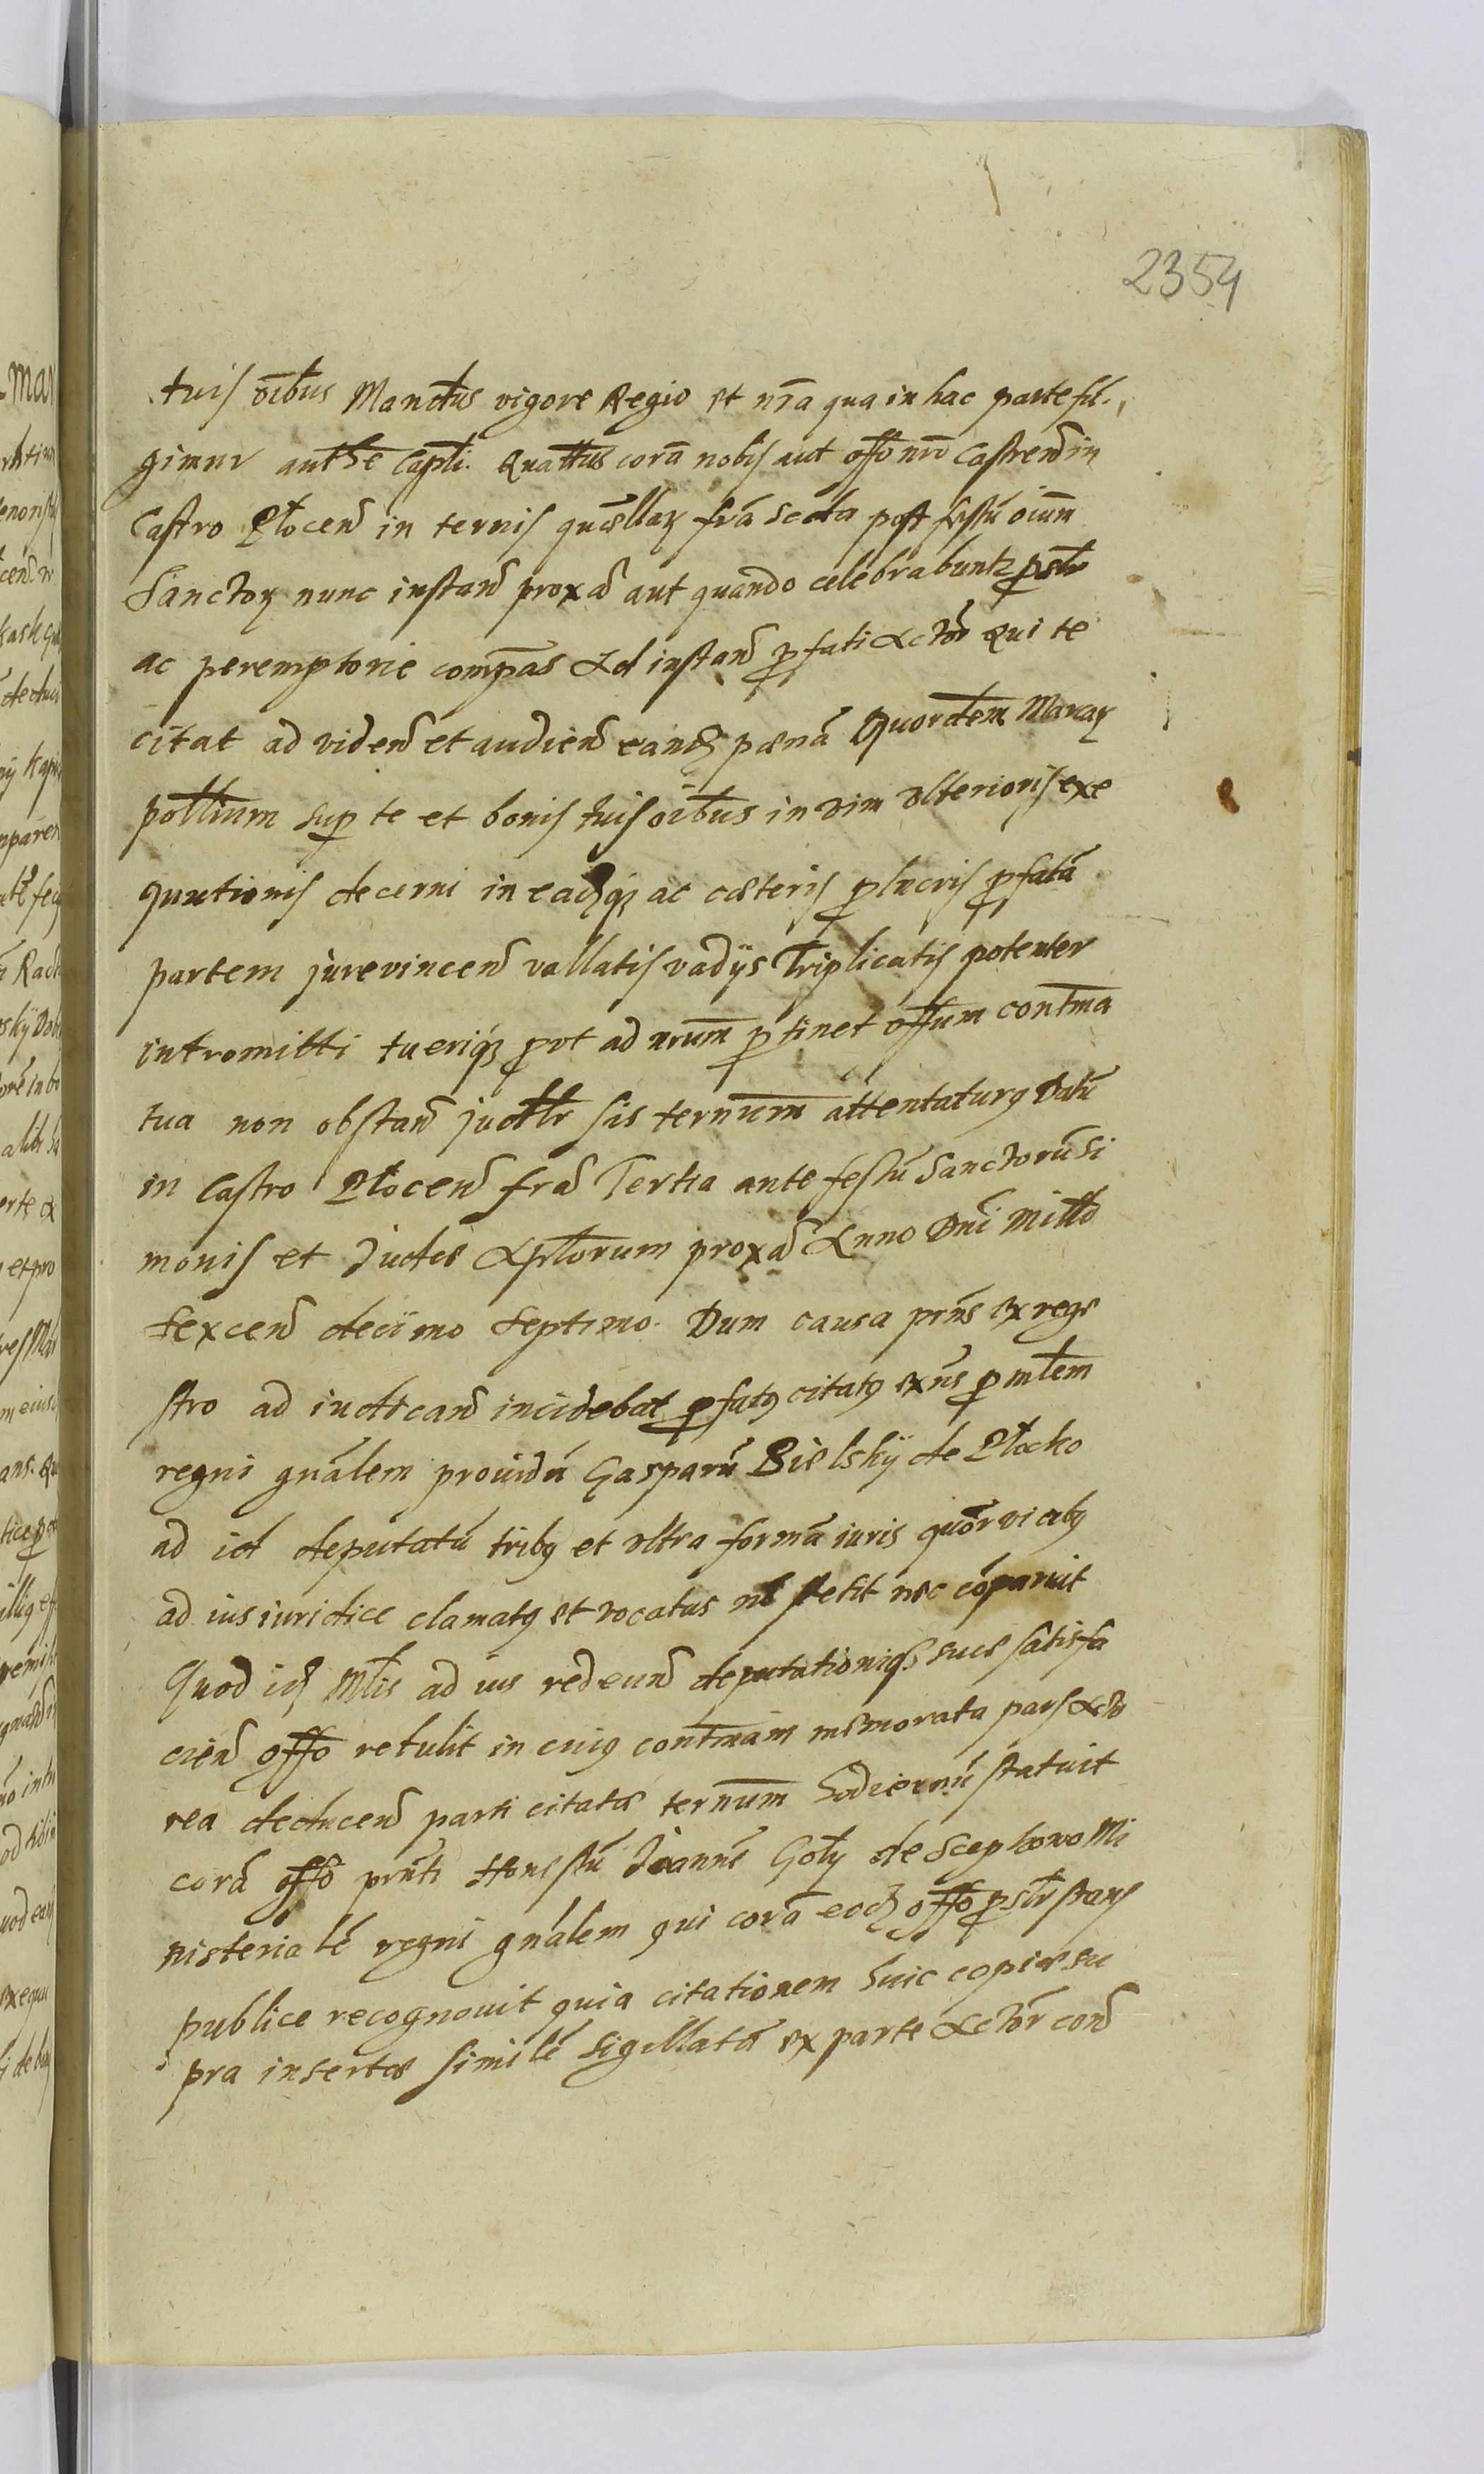 2354
tuis oībus Mandtus vigore Regio et nrā qua in hac parte fū.,
gimur authē Capłi. Quattus corā nobis aut offo nrō Castreñ in
Castro Płoceñ in ternis quællaꝝ friā Scda post festū oīum
Sanctoꝝ nunc instañ proxa aut quando celebrabuntꝛ ꝑsłr
ac peremptorie compās Ad instañ ꝑfati Actōr Qui te
citat ad videñ et audieñ eandꝫ pœnā Quordem Marcaꝝ
pollium sup te et bonis tuis oībus in vim vlterioris exe
qutionis decerni in eadꝫqꝫ ac cæteris ꝑ lucris ꝑfatā
partem jurevinceñ vallatis vadÿs Triplicatis potenter
intromitti tueriqꝫ ꝓvt ad nrum ꝑtinet offum contma
tua non obstañ judłr sis ternum attentaturꝰ Datū
in Castro Płoceñ fria Tertia ante festū Sanctorū Si
monis et Judæ Apłorum proxa Anno Dnī Millō
sexceñ decimo septimo. Dum causa prñs ex regs
stro ad iudicañ incidebat ꝑfatꝰ citatꝰ exñs ꝑ młem
regni gnālem prouidū Gasparū Bielskÿ de Płocko
ad id deputatū tribꝰ et vltra formā iuris quōr vicibꝰ
ad ius iuridice clamatꝰ et vocatus nō stetit nec cōparuit
Quod idꝫ Młis ad ius redeuñ deputationiqꝫ suæ satisfa
cieñ offo retulit in cuiꝰ contmām memorata pars Acto
rea deduceñ parti citatæ ternum hodiernū statuit
corā offō prñti Honestū Joannē Goły de Scephowo Mi
nisterialē regni gnālem qui corā eodꝫ offo ꝑsłr stans
publice recognouit quia citationem huic copiæ su
pra insertæ similē sigillatā ex parte Actōr cond